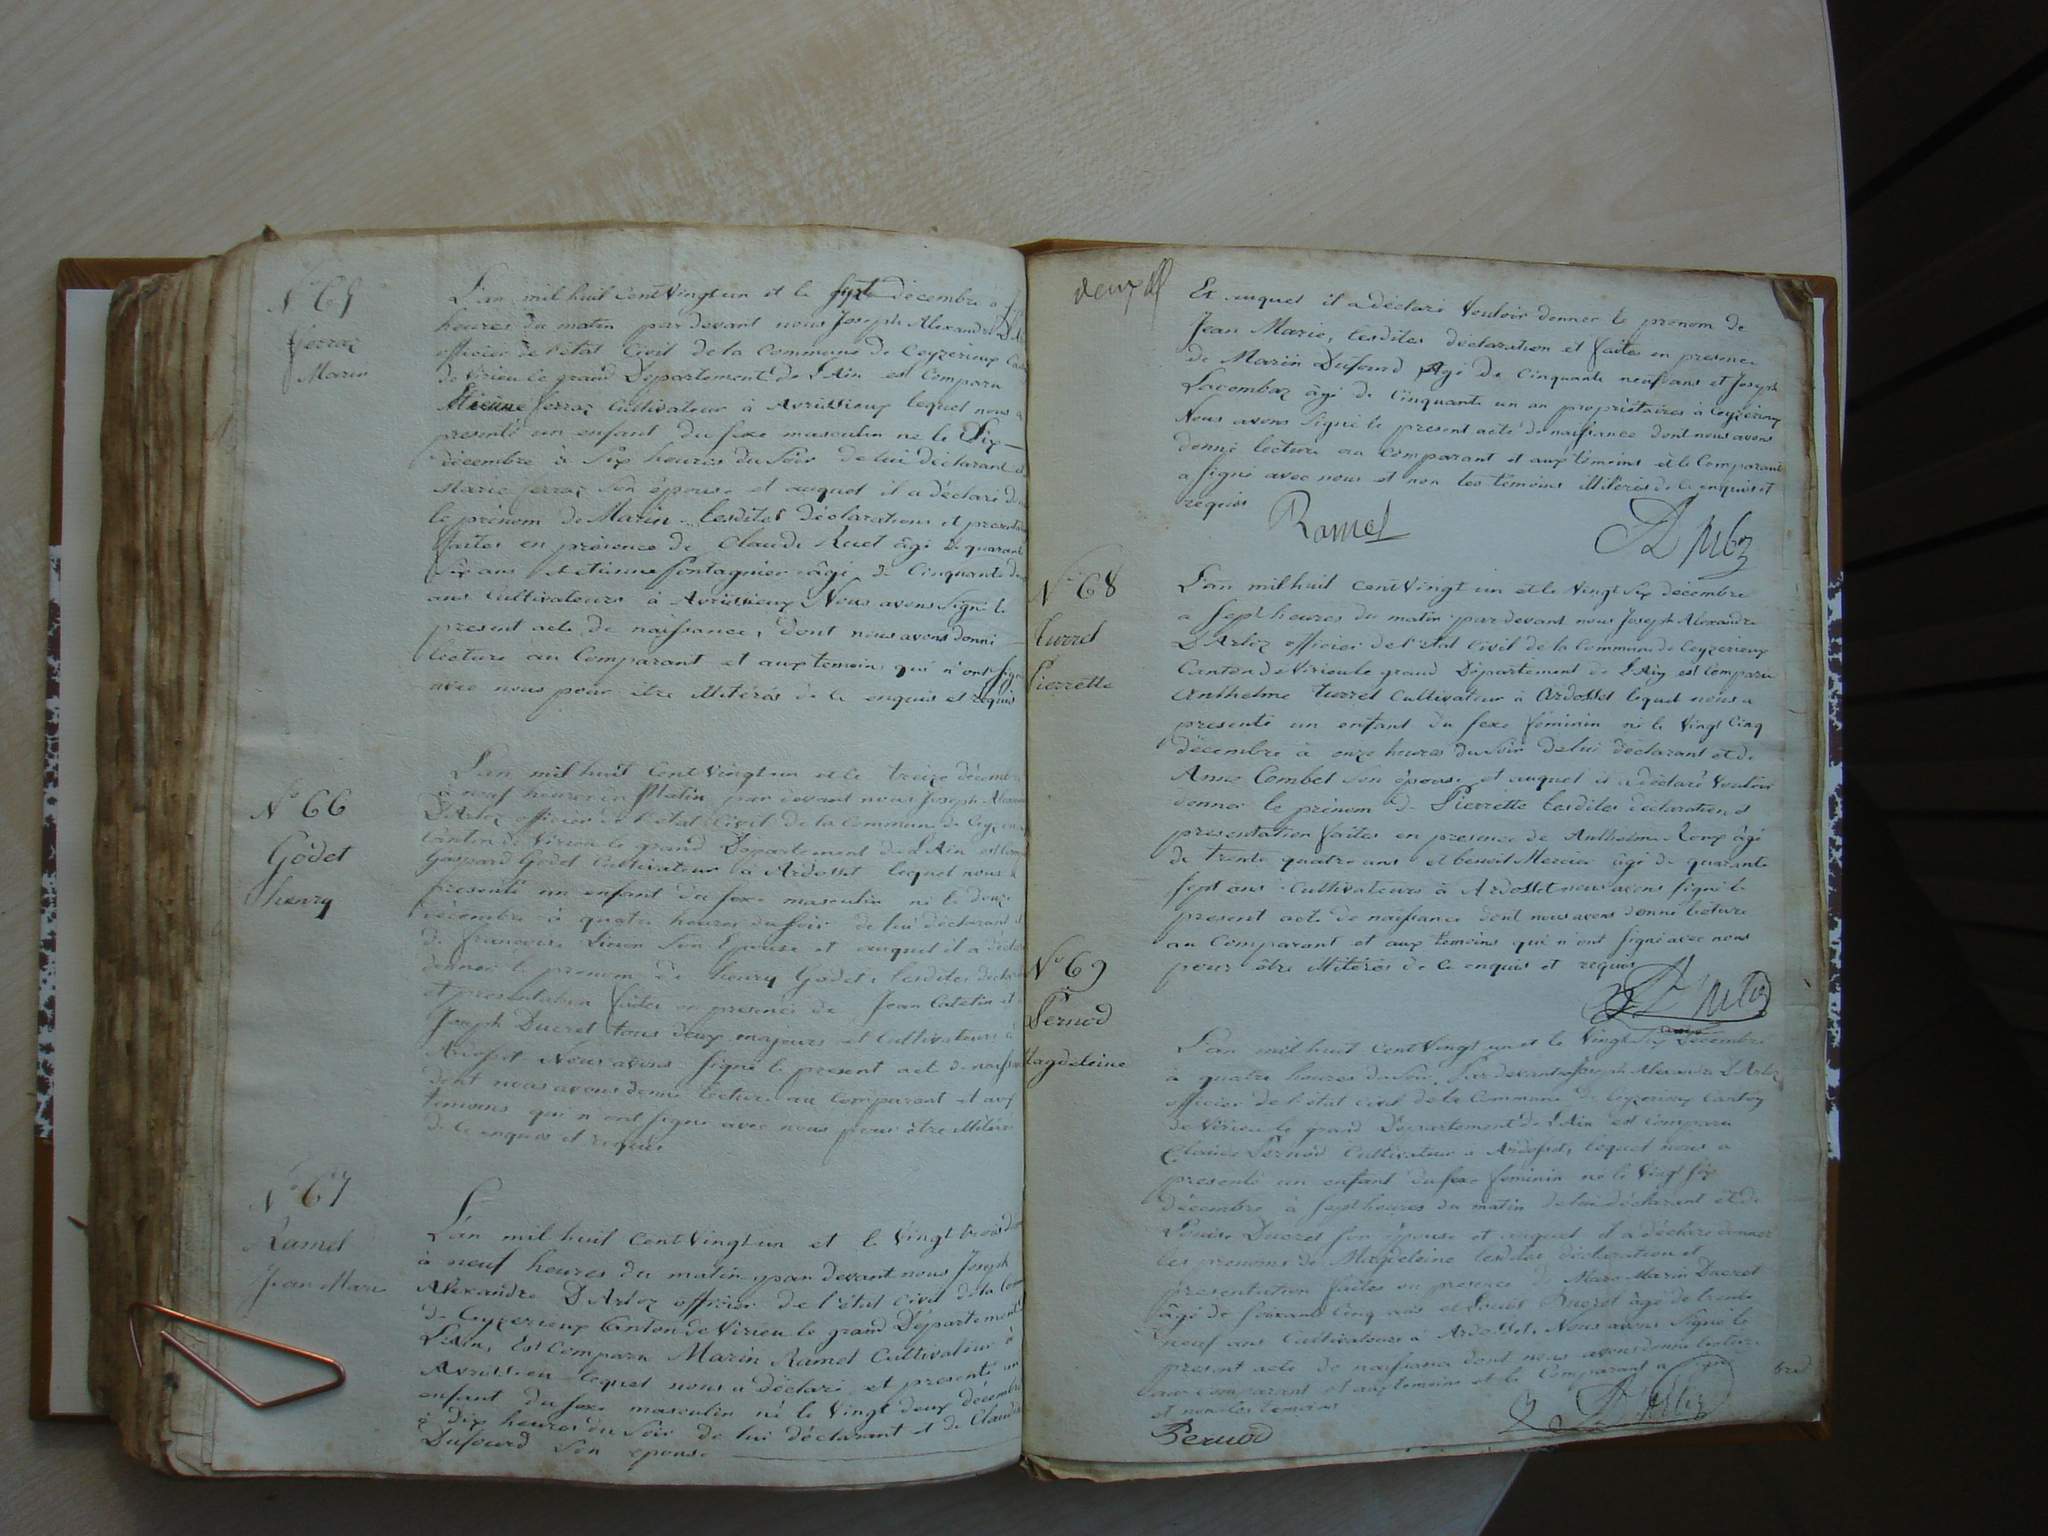 N° 65
Ferraz
Marin
L'an mil huit Cent Vingt un et le sept décembre à
heures du matin par devant nous Joseph Alexandre
officier de l'état Civil de la Commune de Ceyzerieux
de Virieu le grand Département de L'Ain est Comparu
Etienne ferraz Cultivateur à Avrissieux lequel nous a
presenté un enfant du sexe masculin né le Six
décembre à Six heures du Soir de lui déclarant
Marie ferraz Son épouse et auquel il a déclaré
le prénom de Marin lesdites déclarations et
faites en présence de Claude Ruet âgé de
Six ans et Etienne fontagnier âgé de Cinquante
ans Cultivateurs à Avrissieux Nous avons Signé le
present acte de naissance, dont nous avons donné
lecture au Comparant et aux temoins qui n'ont signé
avec nous pour être illitérés de ce enquis et requis
N° 66
Godet
henry
L'an mil huit Cent Vingt un et le treize décembre
à neuf heures du Matin par devant nous Joseph
D'Arloz officier de l'état Civil de la Commune de
Canton de Virieu le grand Département de L'Ain est
Gaspard Godet Cultivateur à Ardosset lequel nous a
presenté un enfant du sexe masculin né le douze
décembre à quatre heures du Soir de lui déclarant
de francoise Son Epouse et auquel il a
donner le prenom de henry Godet, lesdites
et presentation faites en presence de Jean Catelin et
Joseph Ducret tous deux majeurs et Cultivateurs à
Ardosset Nous avons signé le present acte de
dont nous avons donné lecture au Comparant et aux
temoins qui n'ont signé avec nous pour être illitérés
de ce enquis et requis
N° 67
Ramel
Jean Marie
L'an mil huit Cent Vingt un et le Vingt trois
à neuf heures du matin par devant nous Joseph
Alexandre D'Arloz officier de l'état Civil de la
de Ceyzerieux Canton de Virieu le grand Département
L'Ain, Est Comparu Marin Ramel Cultivateur à
Avrissieu lequel nous a déclaré et presenté un
enfant du sexe masculin né le Vingt deux décembre
à dix heures du Soir de lui déclarant et de Claudine
Dufourd Son epouse
deux
Et auquel il a déclaré Vouloir donner le prenom de
Jean Marie, lesdites déclaration et faites en presence
de Marin Dufourd Agé de Cinquante neuf ans et Joseph
Lacombaz âgé de Cinquante un an propriétaires à Ceyzerieux
Nous avons Signé le present acte de naissance dont nous avons
donné lecture au Comparant et aux témoins et le Comparant
a signé avec nous et non les témoins illitérés de ce enquis et
requis
Ramel
D'Arloz
N° 68
Turrel
Pierrette
L'an mil huit cent Vingt un et le Vingt Six décembre
a Sept heures du matin par devant nous Joseph Alexandre
D'Arloz officier de l'état Civil de la Commune de Ceyzerieux
Canton de Virieu le grand Département de L'Ain est Comparu
Anthelme Turrel Cultivateur à Ardosset lequel nous a
presenté un enfant du sexe féminin né le Vingt Cinq
décembre à onze heures du Soir de lui déclarant et de
Anne Combet Son épouse et auquel il a déclaré Vouloir
donner le prénom de Pierrette lesdites déclaration et
presentation faites en presence de Anthelme Roux âgé
de trente quatre ans et benoit Mercier âgé de quarante
sept ans Cultivateurs à Ardosset nous avons signé le
present acte de naissance dont nous avons donné lecture
au Comparant et aux temoins qui n'ont signé avec nous
pour être illitérés de ce enquis et requis
D'Arloz
N° 69
Pernod
Magdeleine
L'an mil huit cent Vingt un et le Vingt Six Décembre
à quatre heures du Soir, Par devant nous Joseph Alexandre D'Arloz
officier de l'état civil de la Commune de Ceyzerieux Canton
de Virieu le grand Département de L'Ain est Comparu
Claude Pernod Cultivateur à Ardosset, lequel nous a
presenté un enfant du sexe féminin né le Vingt six
décembre à sept heures du matin de lui déclarant et de
Louise Ducret son épouse et auquel il a déclaré donner
les prenoms de Magdeleine lesdites déclaration et
présentation faites en presence de Marin Ducret
âgé de soixante Cinq ans et Louis Ducret âgé de trente
neuf ans Cultivateurs à Ardosset. Nous avons Signé le
present acte de naissance dont nous avons donné lecture
au Comparant et aux temoins et le Comparant a signé
et non les temoins
Pernod
D'Arloz